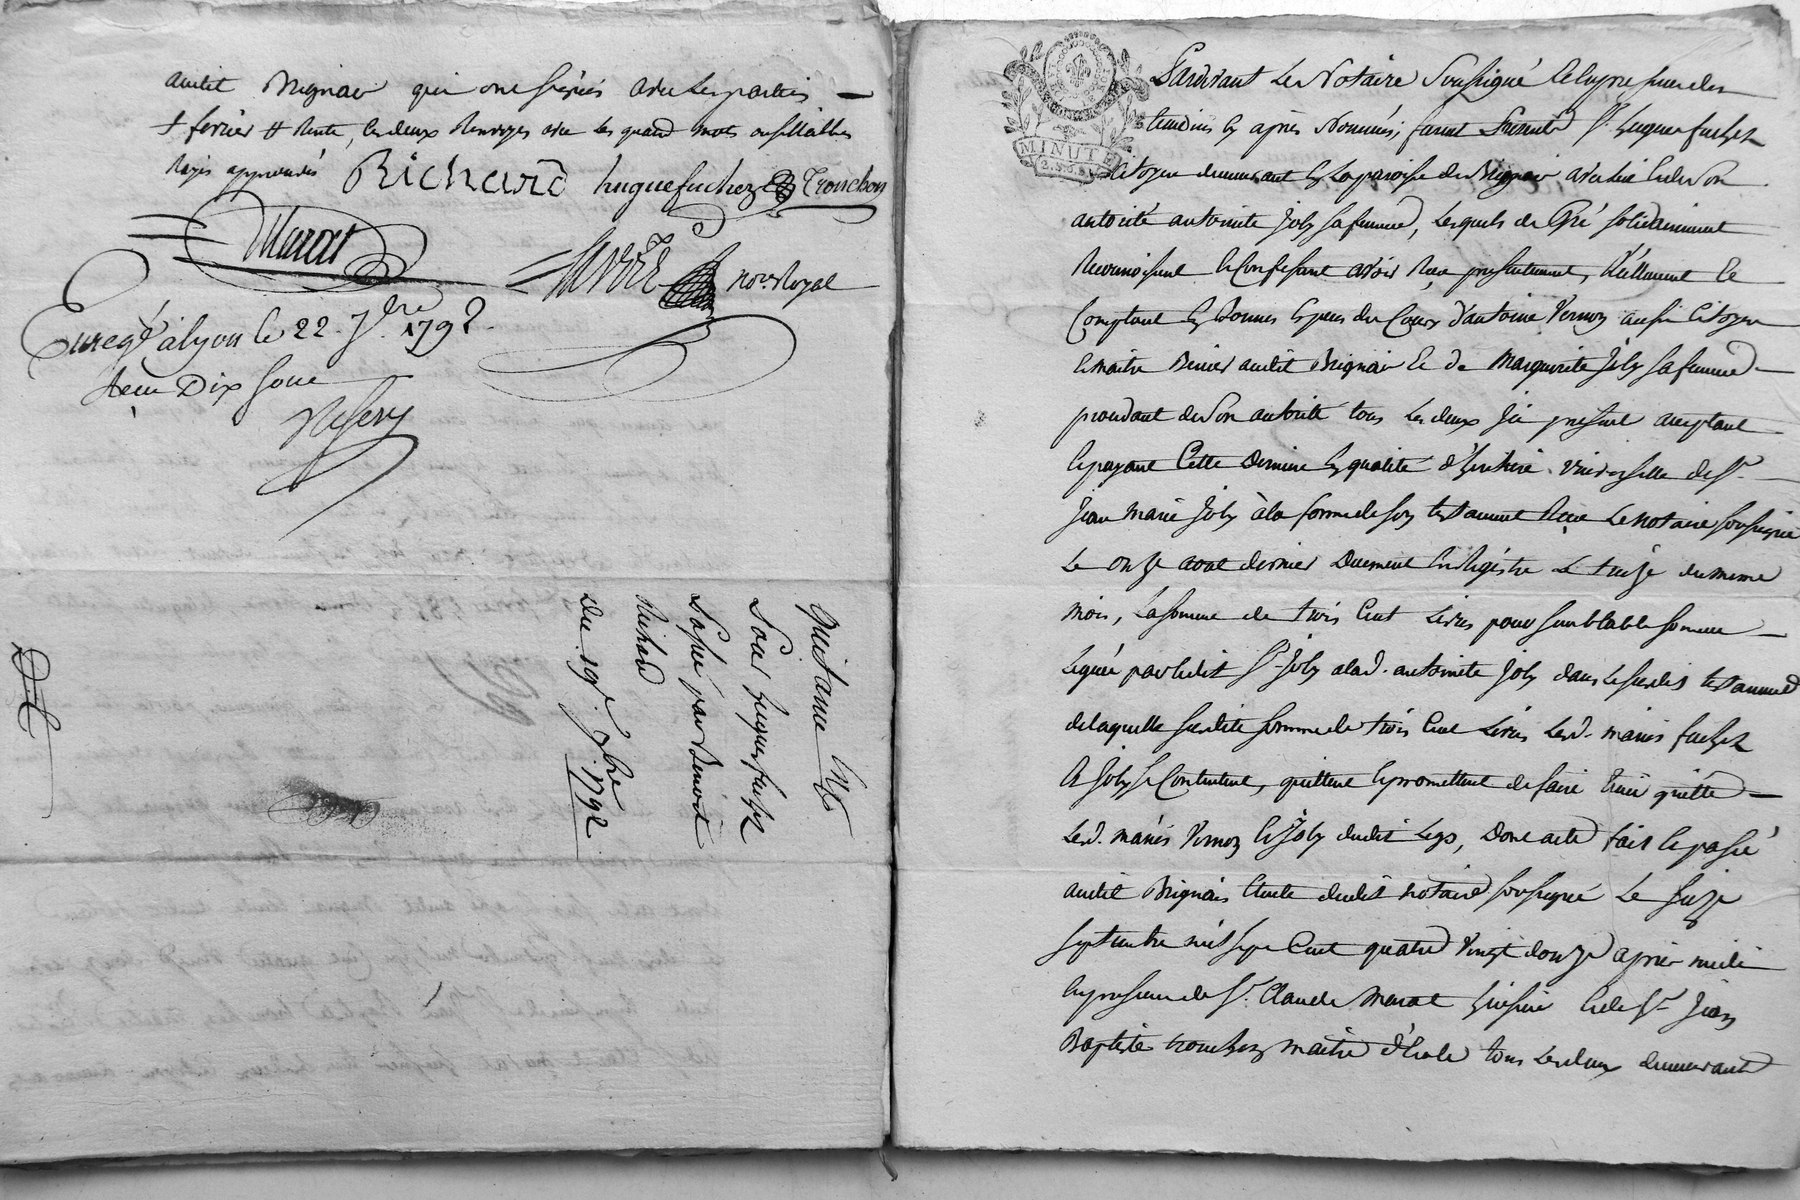 audit Brignais qui ont signés avec les parties
+ février # rente, les deux renvoyes avec les quand mots ou sillables
rayés approuvés Richard hugue fuchez Tronchon
Marat
not. Royal
Enregé à lyon le 22 7bre 1792
reçu Dix sous
quitance
Pour hugue fuchez
Passée par Benoit
Richard
Du 19e. 7bre 1792
MINUTE
2. S. 6. D.
Pardevant Le Notaire Soussigné & en presence des
temoins cy après Nommés; furent Presents Sr. hugue fuchez
Citoyen demeurant en la paroisse de Brignais avec lui et de Son
autorité antoinette Joly sa femme, lesquels de Gré solidairement
Reconnoissent et confessent avoir Reçu presentement, Réellement et
Comptant en Bonnes especes du Cours d'antoine Vernay aussi Citoyen
& maitre audit Brignais et de Marguerite Joly sa femme
procedant de Son autorité tous les deux ici present acceptant
et payant Cette Derniere en qualité d'heritiere universelle de Sr.
Jean Marie Joly à la forme de son testament Reçu le notaire soussigné
Le onze aout dernier Duement Enregistré Le treize du meme
mois, La Somme de trois Cent Livres pour semblable somme
Leguée par ledit Sr. Joly a lad. antoinette Joly dans le susdit testament
de laquelle susdite somme de trois Cent Livres Lesd. mariés fuchez
& Joly se Contentent, quittent et promettent de faire tenir quitte
Lesd. mariés Vernay et Joly dudit Legs, Dont acte fait et passé
audit Brignais Etude dudit notaire soussigné Le seize
septembre mil sept Cent quatre Vingt douze après midi
en presence de Sr. Claude Marat huissier et de Sr Jean
Baptiste tronchon maitre d'Ecole tous les deux demeurant